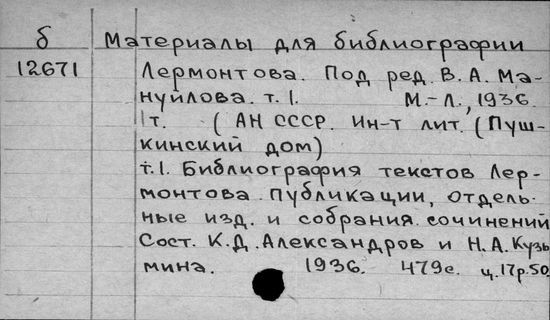 б Материалы для библиографии
12671 Лермонтова. Под ред. В. А. Ма-
нуйлова. т. 1. М.-Л., 1936.
1т. (АН СССР. Ин-т лит. (Пуш-
кинский дом)
т. 1. Библиография текстов Лер-
монтова. Публикации, отдель-
ные изд. и собрания сочинений
Сост. К. Д. Александров и Н. А. Кузь-
мина. 1936. 479с. ц. 17р. 50.